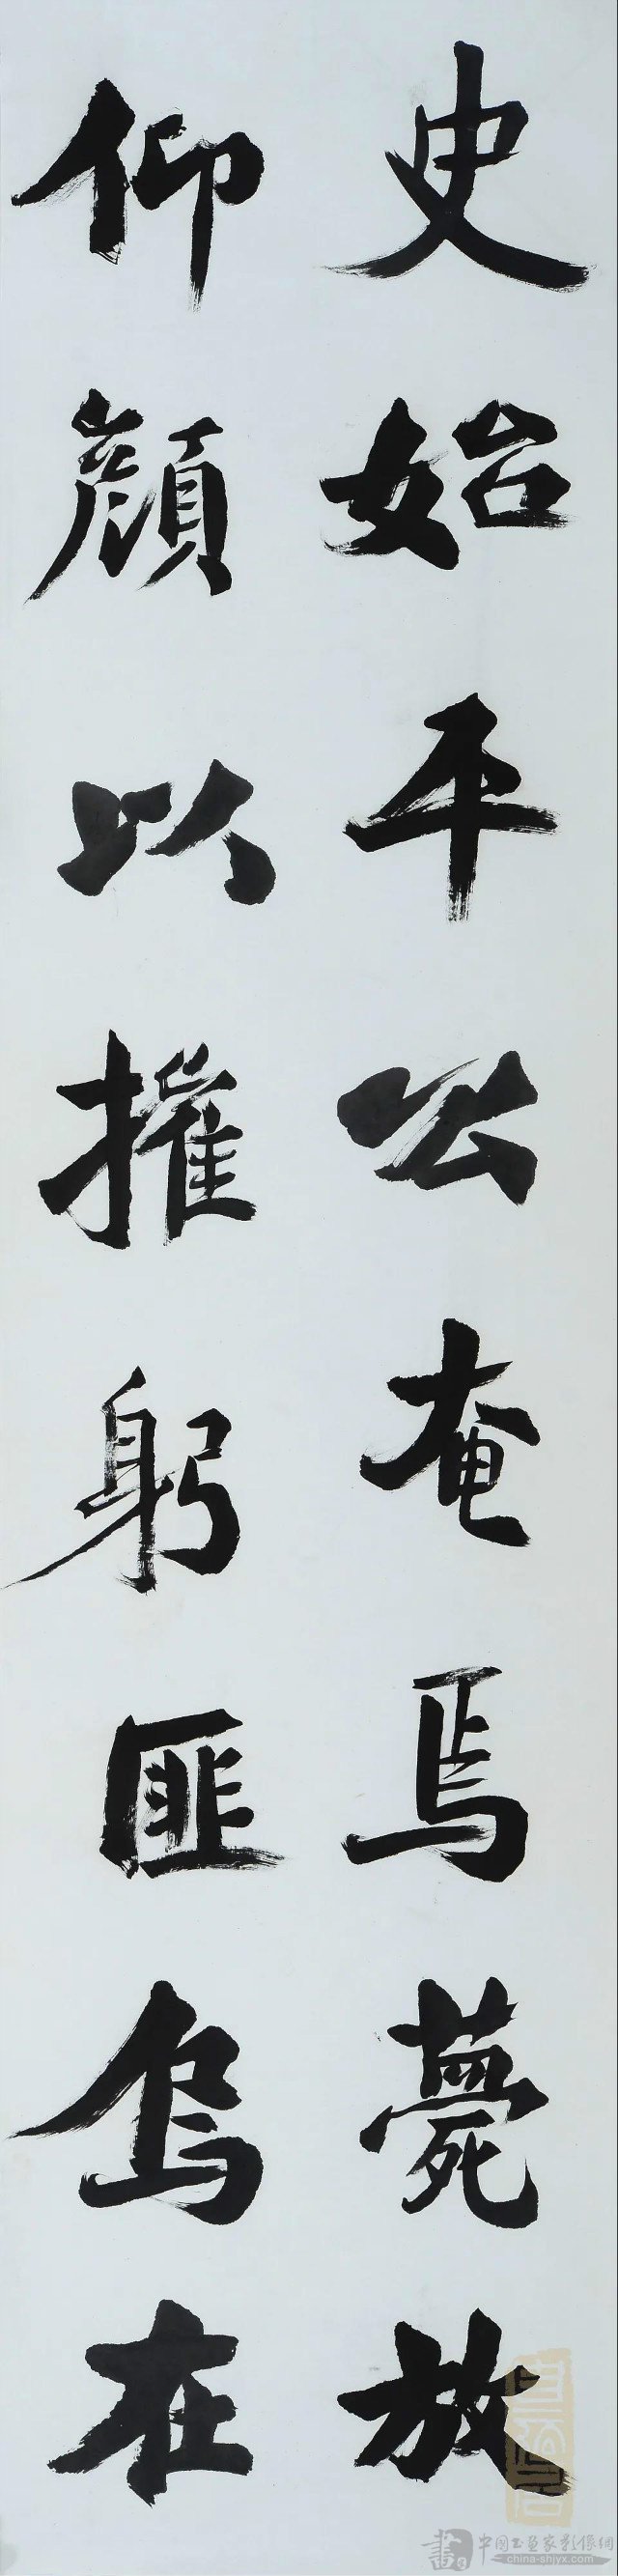 史始平公奄焉薨放
仰顏以摧躬匪烏在
書 中國書畫家影像網
china-shiyx.com